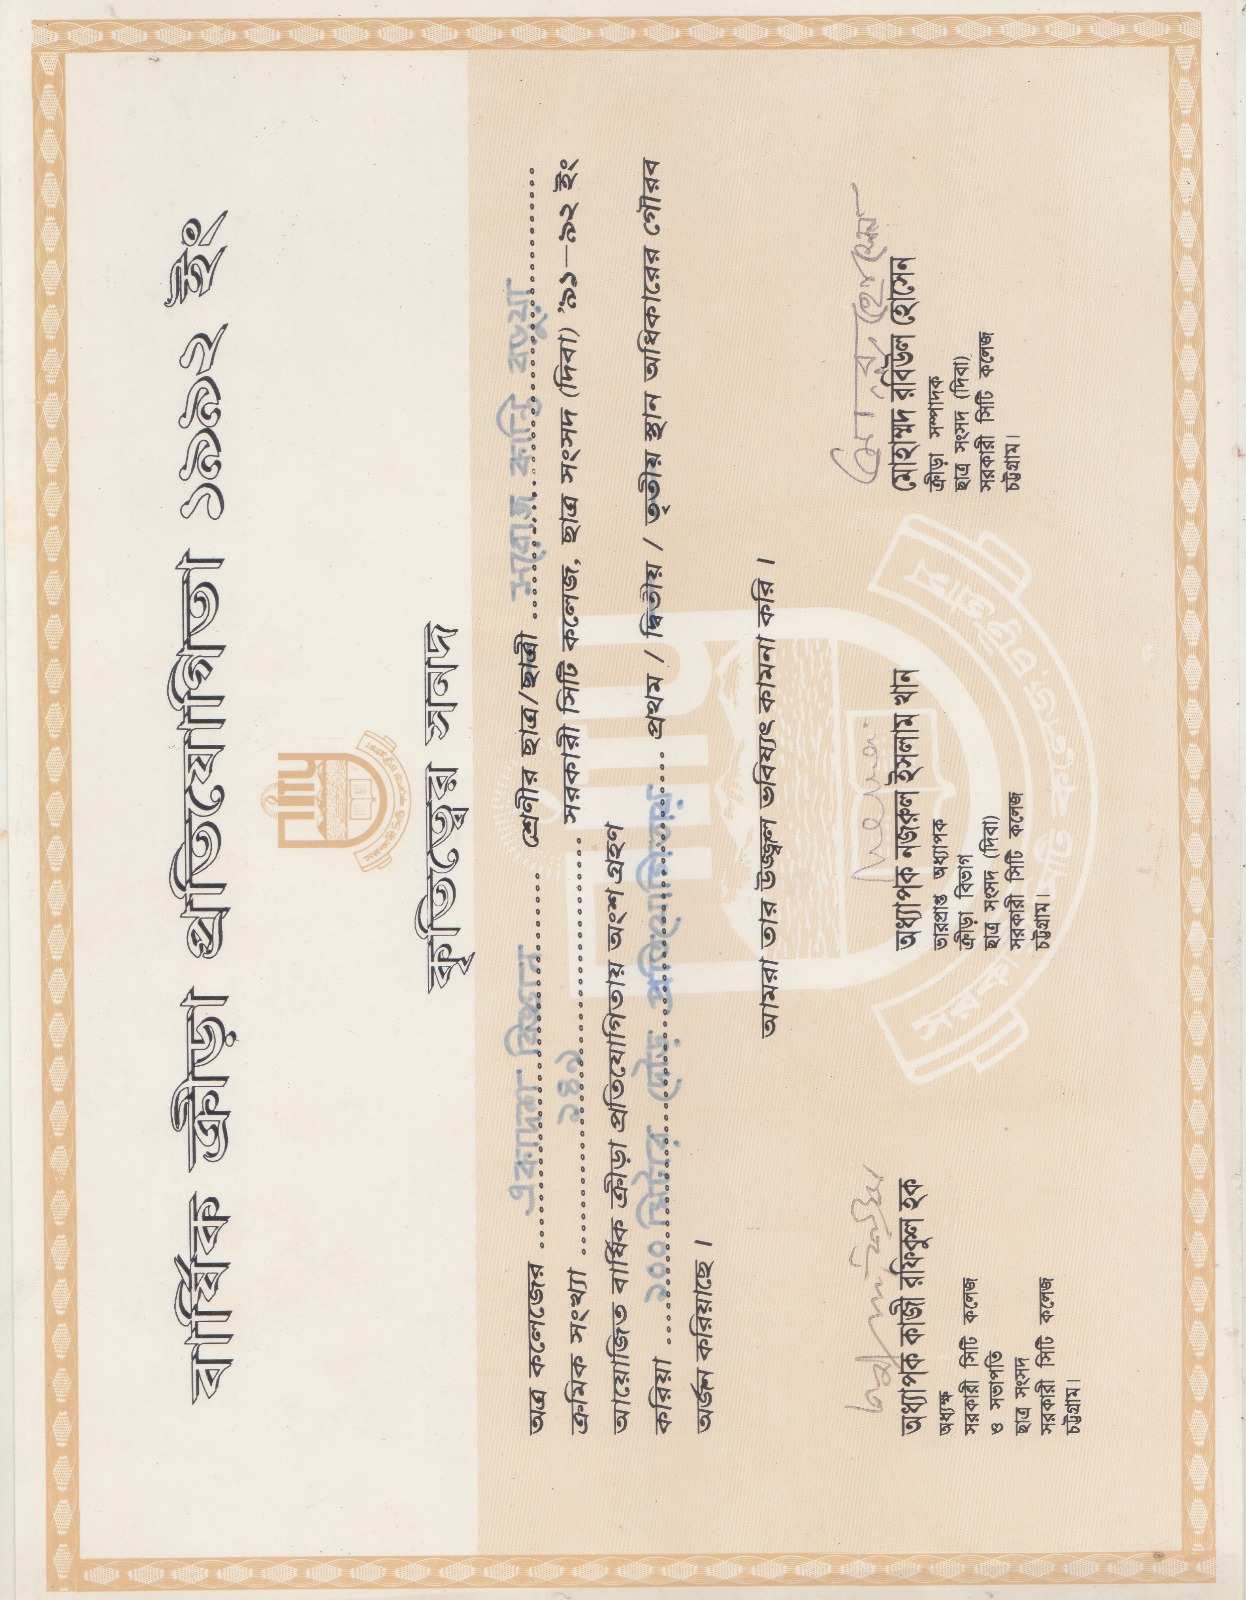 বার্ষিক ক্রীড়া প্রতিযোগিতা ১৯৯২ ইং
সরকারী সিটি কলেজ চট্টগ্রাম
কৃতিত্বের সনদ
অত্র কলেজের একাদশ বিজ্ঞান শ্রেণীর ছাত্র/ছাত্রী সরোজ কান্তি বড়ুয়া
ক্রমিক সংখ্যা ২৪৯ সরকারী সিটি কলেজ, ছাত্র সংসদ (দিবা) '৯১–৯২ ইং
আয়োজিত বার্ষিক ক্রীড়া প্রতিযোগিতায় অংশ গ্রহণ
করিয়া ২০০ মিটার দৌড় প্রতিযোগিতায় প্রথম / দ্বিতীয় / তৃতীয় স্থান অধিকারের গৌরব
অর্জন করিয়াছে ।
আমরা তার উজ্জ্বল ভবিষ্যৎ কামনা করি ।
মোঃ রবিউল হোসেন
অধ্যাপক কাজী রফিকুল হক
অধ্যক্ষ
সরকারী সিটি কলেজ
ও সভাপতি
ছাত্র সংসদ
সরকারী সিটি কলেজ
চট্টগ্রাম।
অধ্যাপক নজরুল ইসলাম খান
ভারপ্রাপ্ত অধ্যাপক
ক্রীড়া বিভাগ
ছাত্র সংসদ (দিবা)
সরকারী সিটি কলেজ
চট্টগ্রাম।
মোহাম্মদ রবিউল হোসেন
ক্রীড়া সম্পাদক
ছাত্র সংসদ (দিবা)
সরকারী সিটি কলেজ
চট্টগ্রাম।
সরকারী সিটি কলেজ, চট্টগ্রাম